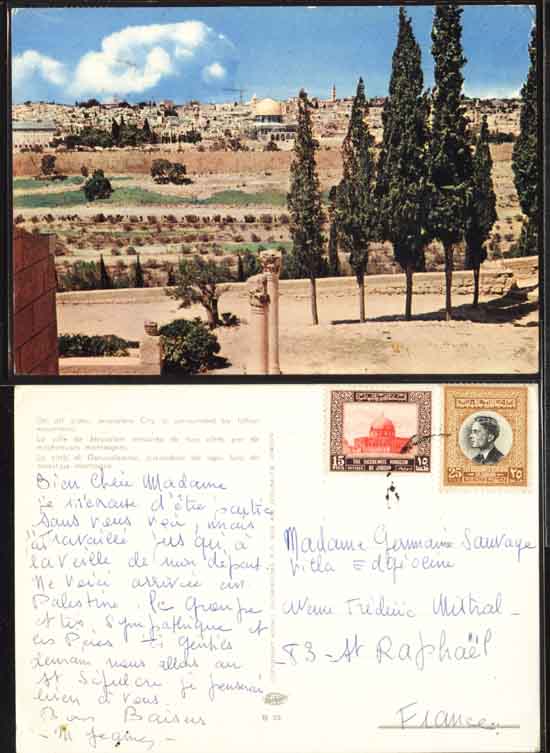 On all sides, Jerusalem City is surrounded by lofty mountains.
La ville de Jérusalem entourée de tous côtés par de
montagnes.
Bien Chère Madame
je m'excuse d'être partie
sans vous voir, mais
j'ai travaillé jusqu'à
la veille de mon départ.
Me voici arrivée en
Palestine. Le Groupe
est très sympathique et
les Pères si gentils
demain nous allons au
St Sépulcre je penserai
bien à vous.
Bons Baisers
15
FILS
THE HASHEMITE KINGDOM
OF JORDAN
١٥
25
٢٥
Madame Germaine Sauvage
Villa
Avenue Frédéric Mistral
83-St Raphaël
France
B 23